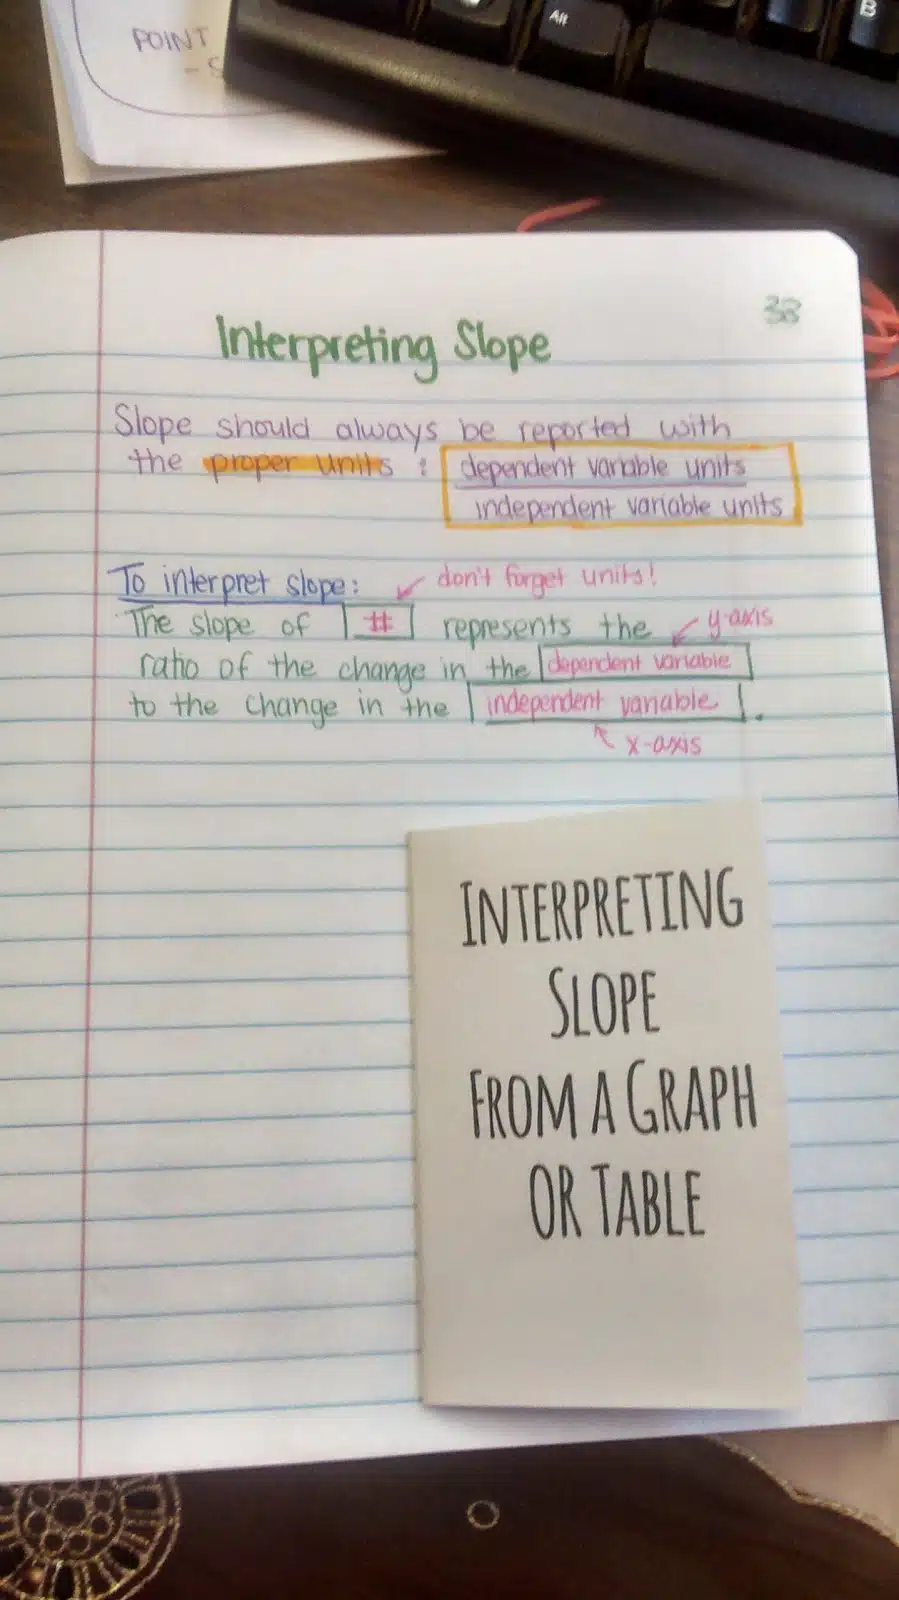 POINT
Alt
B
38
Interpreting Slope
Slope should always be reported with
the proper units : dependent variable units
independent variable units
To interpret slope: don't forget units!
The slope of # represents the y-axis
ratio of the change in the dependent variable
to the change in the independent variable.
x-axis
INTERPRETING
SLOPE
FROM A GRAPH
OR TABLE